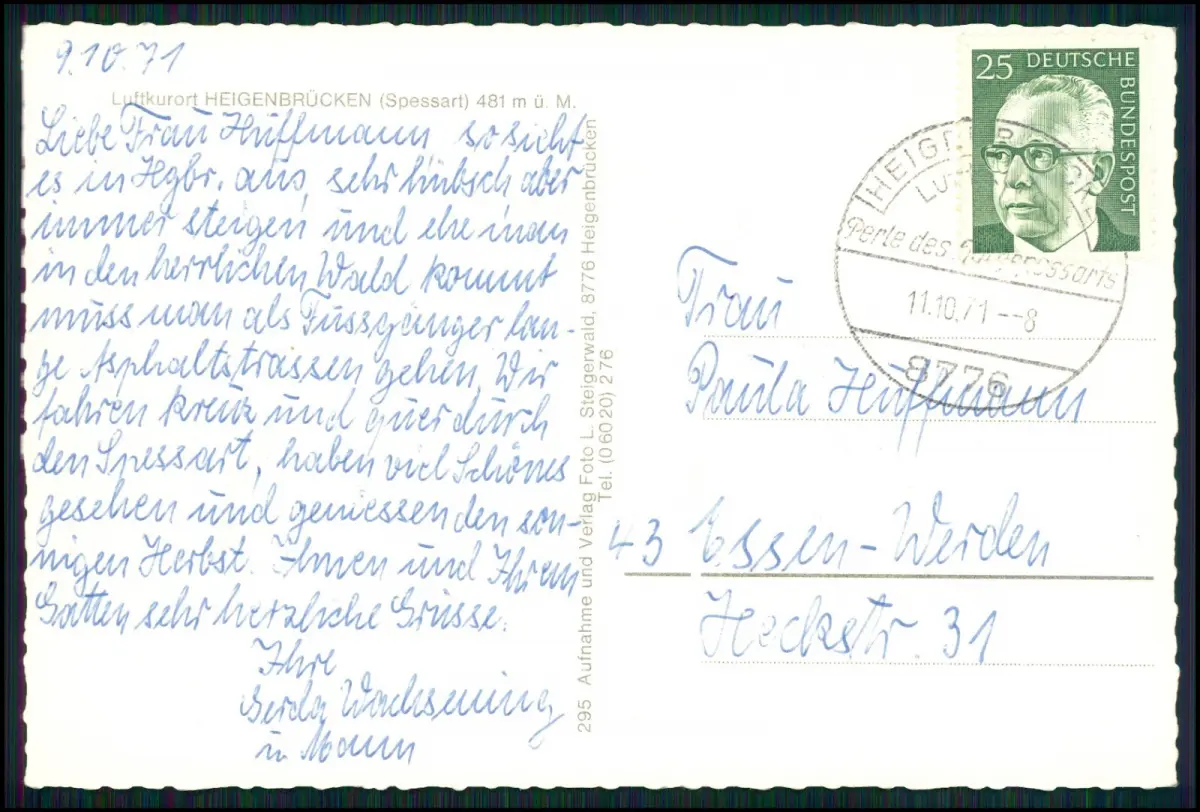 9.10.71
Luftkurort HEIGENBRÜCKEN (Spessart) 481 m ü. M.
Liebe Frau Huffmann so sieht
es in Hgbr. aus, sehr hübsch aber
immer steigen und ehe man
in den herrlichen Wald kommt
muss man als Fussgänger lan-
ge Asphaltstrassen gehen. Wir
fahren kreuz und quer durch
den Spessart, haben viel Schönes
gesehen und geniessen den son-
nigen Herbst. Ihnen und Ihrem
Gatten sehr herzliche Grüsse.
Ihre
Gerda
u Mann
295 Aufnahme und Verlag Foto L. Steigerwald, 8776 Heigenbrücken
Tel. (0 60 20) 2 76
25 DEUTSCHE
BUNDESPOST
Perle des
11.10.71 --8
8776
Frau
Paula Huffmann
43 Essen-Werden
Heckstr. 31